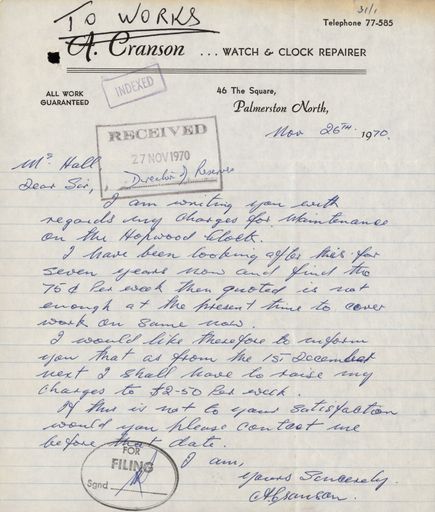 TO WORKS
31/1
Telephone 77-585
A. Cranson ... WATCH & CLOCK REPAIRER
ALL WORK
GUARANTEED
INDEXED
46 The Square,
Palmerston North,
Nov 26TH 1970.
RECEIVED
27 NOV 1970
Director of Reserves
Mr Hall
Dear Sir,
I am writing you with
regards my charges for maintenance
on the Hopwood Clock.
I have been looking after this for
seven years now and find the
75¢ per week then quoted is not
enough at the present time to cover
work on same now.
I would like therefore to inform
you that as from the 1st December
next I shall have to raise my
charges to $2-50 per week.
If this is not to your satisfaction
would you please contact me
before that date.
I am,
Yours Sincerely.
A Cranson.
FOR
FILING
Sgnd